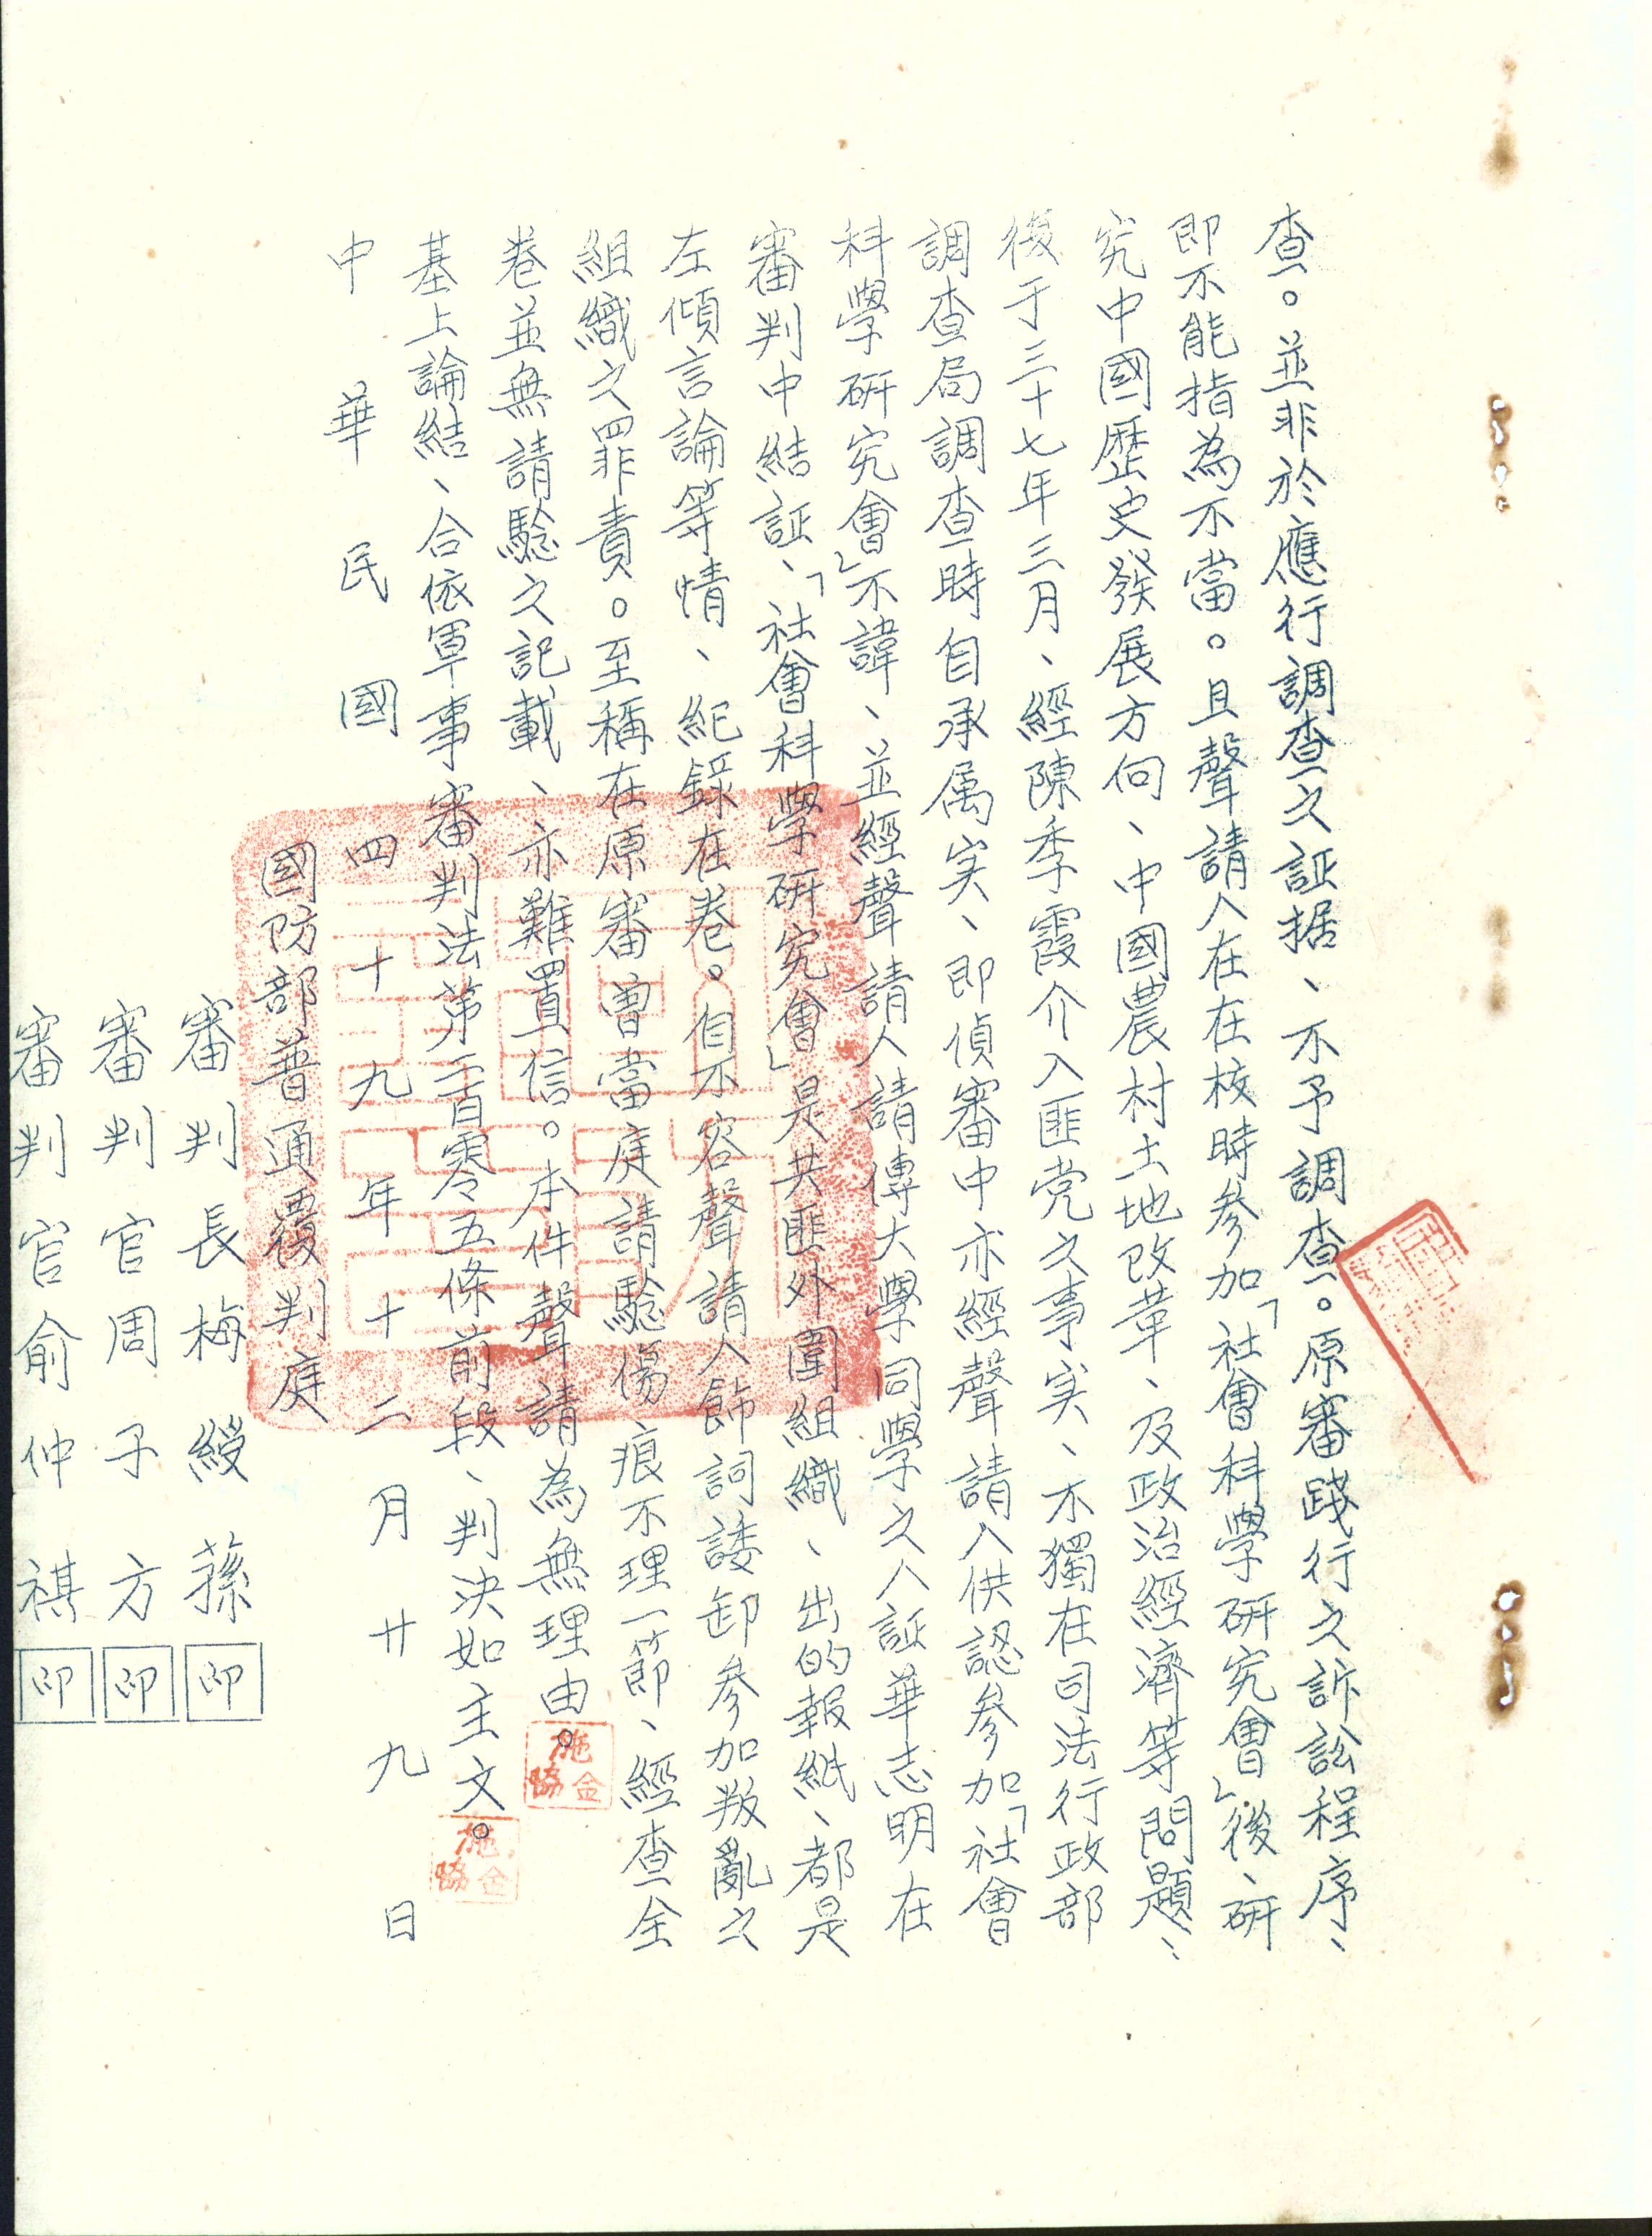 查。並非於應行調查之証据、不予調查。原審踐行之訴訟程序、
即不能指為不當。且聲請人在在校時參加「社會科學研究會」後、研
究中國歷史發展方向、中國農村土地改革、及政治經濟等問題、
後于三十七年三月、經陳季霞介入匪党之事实、不獨在司法行政部
調查局調查時自承属实、即偵審中亦經聲請人供認參加「社會
科學研究會」不諱、並經聲請人請傳大學同學之人証華志明在
審判中結証、「社會科學研究會」是共匪外圍組織、出的報紙、都是
左傾言論等情、紀錄在卷。自不容聲請人飾詞諉卸參加叛亂之
組織之罪責。至稱在原審曾當庭請驗傷痕不理一節、經查全
卷並無請驗之記載、亦難置信。本件聲請為無理由。
基上論結、合依軍事審判法第二百零五條前段、判決如主文。
中華民國四十九年十二月廿九日
國防部普通覆判庭
審判長梅綬蓀印
審判官周子方印
審判官俞仲祺印
施金協
施金協